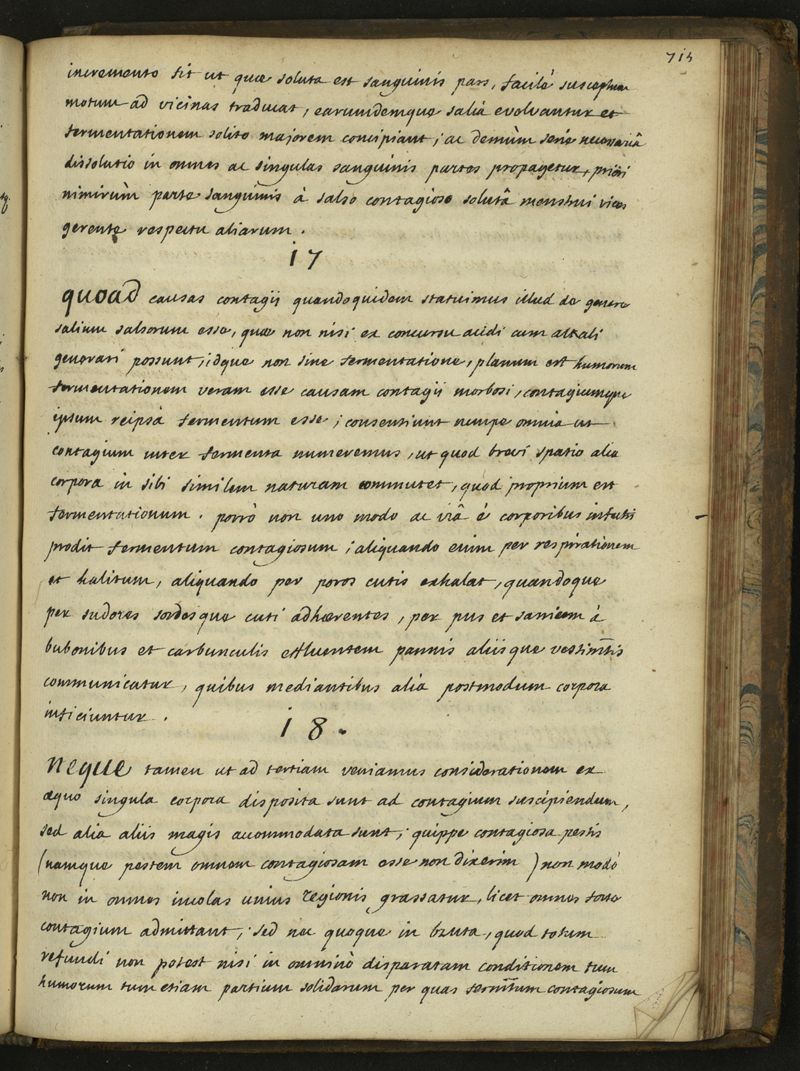 713
incremento fit ut quæ soluta est sanguinis pars, facilè susceptum
motum ad vicinas traducat, earumdemque salia evolvantur et
fermentationem solito majorem concipiant, ac demùm serie necessariâ
dissolutio in omnes ac singulas sanguinis partes propagetur, priori
nimirùm parte sanguinis à salso contagioso solutâ menstrui vices
gerente respectu aliarum.
17
quoad causas contagii quandoquidem statuimus illud de genere
salium salsorum esse, quæ non nisi ex concursu acidi cum alkali
generari possunt, idque non sine fermentatione, planum est humorum
fermentationem veram esse causam contagii morbosi, contagiumque
ipsum reipsâ fermentum esse; consentiunt nempe omnia ut
contagium inter fermenta numeremus, ut quod brevi spatio alia
corpora in sibi similem naturam commutet, quod proprium est
fermentationum. porrò non uno modo ac viâ è corporibus infectis
prodit fermentum contagiosum; aliquando enim per respirationem
et halitum, aliquando per poros cutis exhalat, quandoque
per sudores sordesque cuti adhærentes, per pus et saniem à
bubonibus et carbunculis effluentem pannis aliisque vestimtis
communicatur, quibus mediantibus alia postmodum corpora
inficiuntur.
18.
neque tamen ut ad tertiam veniamus considerationem ex
æquo singula corpora disposita sunt ad contagium suscipiendum,
sed alia aliis magis accommodata sunt; quippe contagiosa pestis
(namque pestem omnem contagiosam esse non dixerim) non modò
non in omnes incolas unius regionis grassatur, licet omnes forte
contagium admittant; sed nec quoque in bruta, quod totum
refundi non potest nisi in omninò disparatam conditionem tum
humorum tum etiam partium solidarum per quas fermtum contagiosum